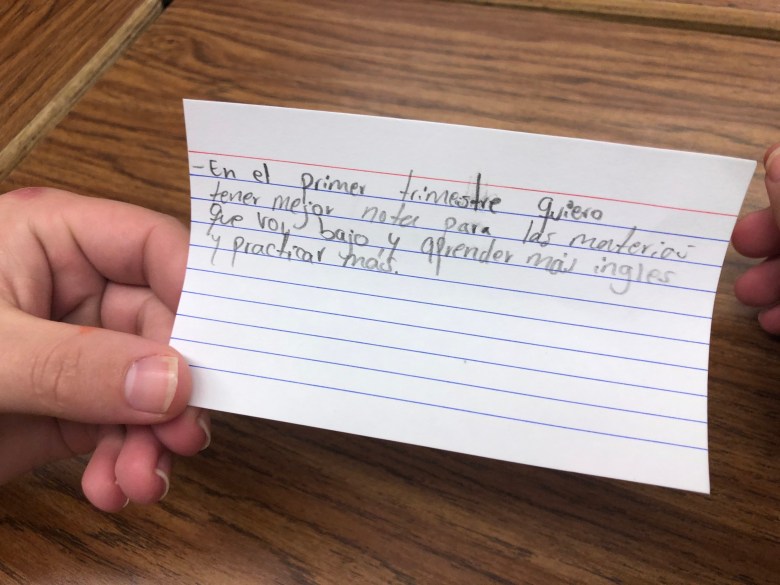 - En el primer trimestre quiero
tener mejor nota para las materias
que voy bajo y aprender más ingles
y practicar mas.